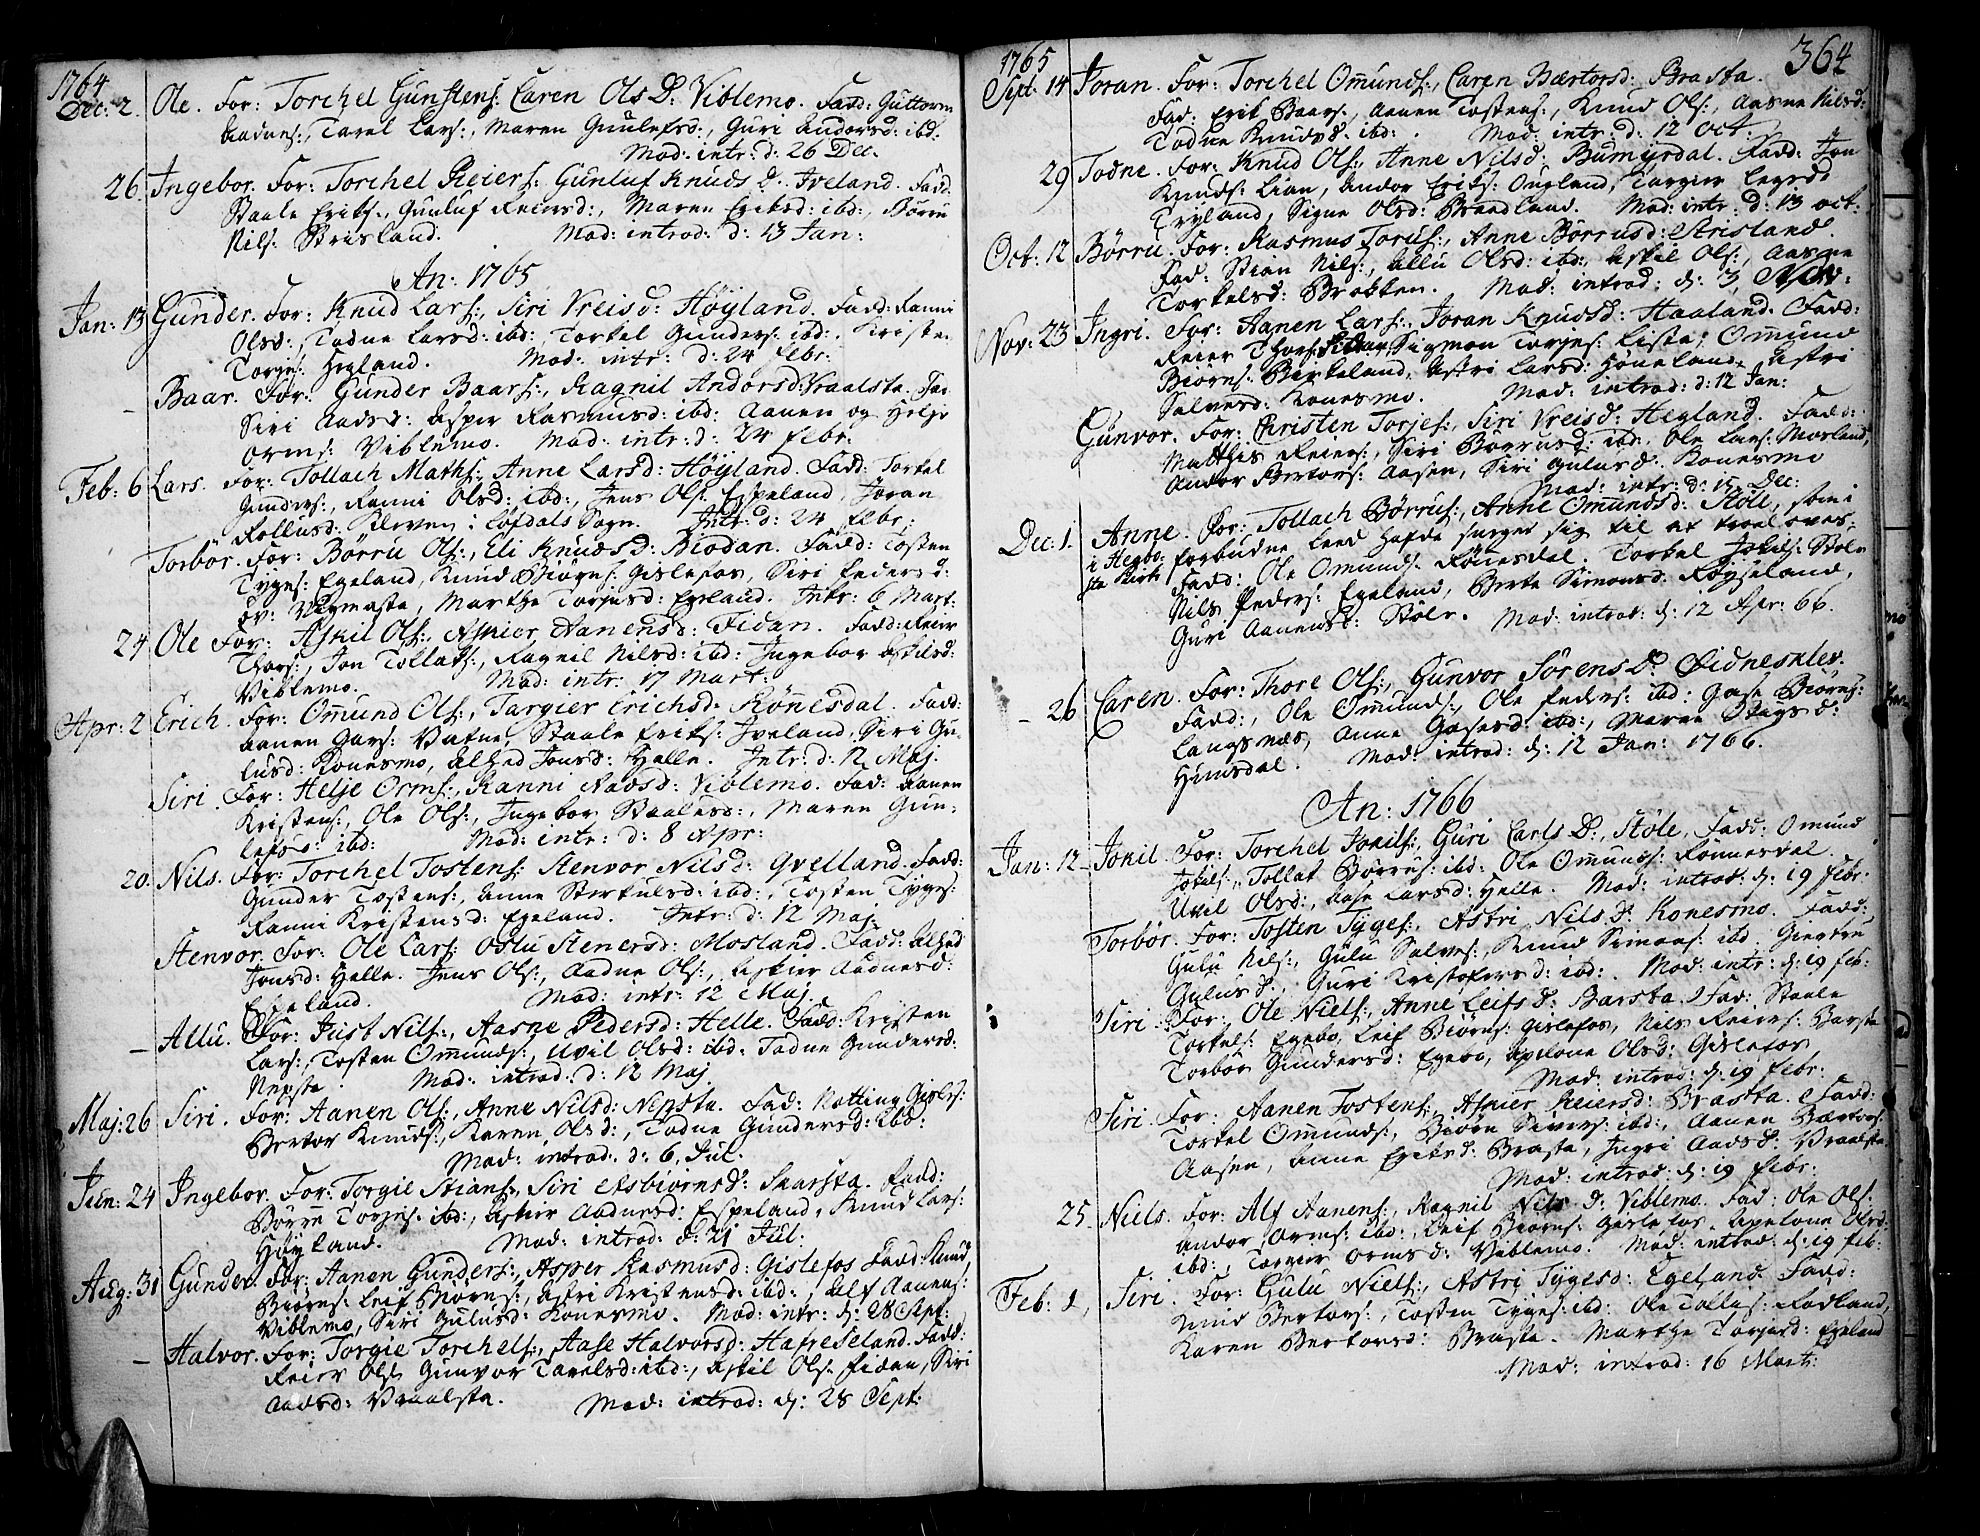 1764
Dec: 2. Ole. For: Torchel Gunstens: Caren Ols D: Viblemo. Fadd: Guttorm
Aadnes:, Tarel Lars:, Maren Gunlefsd:, Guri Andorsd: ibd:
Mod: intr: d: 26 Dec.
26. Ingebor. For: Torchel Reiers: Gunluf Knuds D: Iveland. Fadd:
Staale Eriks:, Gunluf Reiersd:, Maren Eriksd: ibd:, Börru
Nils: Strisland. Mod: introd: d: 13 Jan:
An: 1765
Jan: 13 Gunder. For: Knud Lars:, Siri Vreisd: Höyland. Fadd: Ranni
Olsd:, Todne Larsd: ibd: Torkel Gunders: ibd: Kristen
Torjes: Hegland. Mod: intr: d: 24 Febr:
– Baar. For: Gunder Baars:, Ragnil Andorsd: Vraalsta. Fad:
Siri Aadsd: Asper Rasmusd: ibd: Aanen og Helje
Orms: Viblemo. Mod: intr: d: 24 Febr:
Feb: 6 Lars. For: Tollach Maths:, Anne Larsd: Höyland. Fadd: Torkel
Gunders:, Ranni Olsd: ibd:, Jens Ols: Espeland, Joran
Rollusd: Kleven i Löfdals Sogn. Intr: d: 24 Febr:
Torbör. For: Börru Ols:, Eli Knudsd: Biodan. Fadd: Tosten
Tyges: Egeland, Knud Biörns: Gislefos, Siri Peders d:
Ov: Vigmasta, Marthe Torjusd: Egeland. Intr: 6 Mart:
24 Ole For: Askil Ols:, Askier Aanensd: Fidan. Fadd: Reier
Thors:, Jon Tollafs:, Ragnil Nilsd: ibd: Ingebor Askilsd:
Viblemo. Mod: intr: 17 Mart:
Apr: 2 Erich. For: Omund Ols:, Targier Erichsd: Rönesdal. Fadd:
Aanen Gars: Vatne, Staale Eriks: Iveland, Siri Gu-
lusd: Konesmo, Alhed Jonsd: Helle. Intr: d: 12 Maj.
Siri. For: Helje Orms:, Ranni Aadsd: Viblemo. Fad: Aanen
Kristens:, Ole Ols:, Ingebor Staalesd:, Maren Gun-
lefsd: ibd: Mod: intr: d: 8 Apr:
20. Nils. For: Torchel Tostens: Stenvor Nilsd: Qvelland. Fadd:
Gunder Tostens:, Anne Sterkulsd: ibd:, Tosten Tyges:
Ranni Kristensd: Egeland. Intr: d: 12 Maj.
Stenvor. For: Ole Lars: Oslu Stenersd: Mosland. Fadd: Alhed
Jonsd: Helle. Jens Ols:, Aadne Ols:, Askier Aadnesd:
Espeland. Mod: intr: 12 Maj.
– Allu. For: Just Nils:, Aasne Pedersd: Helle. Fadd: Kristen
Lars:, Tosten Omunds:, Uvil Olsd: ibd: Todne Gundersd:
Nepsta. Mod: introd: d: 12 Maj.
Maj: 26 Siri. For: Aanen Ols:, Anne Nilsd: Nepsta. Fad: Notting Gislers:
Bertor Knuds:, Karen Olsd:, Todne Gundersd: ibd:
Mod: introd: d: 6. Jul.
Jun: 24 Ingebor. For: Torgie Stians:, Siri Asbiörnsd: Skarsta. Fadd:
Börre Torjes: ibd:, Askier Aadnesd: Espeland, Knud Lars:
Höyland. Mod: introd: d: 21 Jul:
Aug: 31 Gunder. For: Aanen Gunders:, Asper Rasmusd: Gislefos Fadd: Knud
Biörns: Leif Biörns:, Astri Kristensd: ibd:, Alf Aanens:
Viblemo, Siri Gulusd: Konesmo. Mod: intr: d: 28 Sept:
– Halvor. For: Torgie Torchels:, Aase Halvorsd: Hafredeland. Fadd:
Reier Ols: Gunvor Tarelsd: ibd:, Askil Ols: Fidan, Siri
Aadsd: Vraalsta. Mod: introd: d: 28 Sept:
1765
364
Sept: 14 Joran. For: Torchel Omunds:, Caren Bærtorsd: Brasta.
Fad: Erik Baars:, Aanen Tostens:, Knud Ols:, Aasne Nilsd:
Todne Knudsd: ibd: Mod: intr: d: 12 Oct.
29 Todne. For: Knud Ols:, Anne Nilsd: Bumyrdal. Fadd: Jon
Knuds: Lian, Andor Eriks: Ougland, Targier
Tryland, Signe Olsd: Brædland. Mod: intr: d: 13 Oct:
Oct: 12 Börru. For: Rasmus Torus:, Anne Börrusd: Strisland.
Fad: Stian Nils:, Allu Olsd: ibd:, Askil Ols:, Aasne
Torkelsd: Brokken. Mod: introd: d: 3, Nov:
Nov: 23 Ingri. For: Aanen Lars:, Joran Knudsd: Haaland. Fadd:
Reier Thors: Fidan, Sigmon Torjes: Lista, Omund
Biörns: Birkeland, Astri Larsd: Höneland, Astri
Salvesd: Konesmo. Mod: introd: d: 12 Jan:
Gunvor. For: Christen Torjes:, Siri Vreisd: Hegland. Fadd:
Matthis Reiers:, Siri Börrusd: ibd:, Ole Lars: Mosland,
Andor Bertors: Aasen, Siri Gulusd: Konesmo
Mod: intr: d: 15, Dec:
Dec: 1. Anne. For: Tollach Börrus:, Anne Omundsd: Støle, som i
i Aegbo- forbudne leed hafde sørget sig til at troeloves:
sta Kirke Fadd: Ole Omunds: Rönesdal. Torkel Jokils: Stole
Nils Peders: Egeland, Berte Simonsd: Röyseland,
Guri Aanensd: Stöle. Mod: introd: d: 12 Apr: 66.
– 26 Caren. For: Thore Ols:, Gunvor Sörens D: Eidnesklev.
Fadd:, Ole Omunds:, Ole Peders: ibd: Gase Biörns:
Langsnæs, Anne Gasesd: ibd:, Maren Stegsd:
Himsdal. Mod: introd: d: 12 Jan: 1766.
An: 1766
Jan: 12 Jokil. For: Torchel Jokils:, Guri Carls D:, Støle, Fadd: Omund
Jokils:, Tollak Börrus: ibd: Ole Omunds: Rönnesdal.
Uvil Olsd:, Aase Larsd: Helle. Mod: introd: d: 19 Febr:
Torbör. For: Tosten Tyges:, Astri Nils D: Konesmo. Fadd:
Gulu Nils:, Gulu Salves:, Knud Simons: ibd: Giertru
Gulusd:, Guri Kristofersd: ibd:. Mod: intr: d: 19 Feb:
Siri. For: Ole Niels:, Anne Leifs D: Barsta. Fad: Staale
Torkels: Egebo, Leif Biörns: Gislefos, Nils Reiers: Barsta
Torbör Gundersd: Egebo, Apelone Olsd: Gislefos
Mod: introd: d: 19 Febr:
Siri For: Aanen Tostens:, Askier Reiersd: Brasta. Fadd:
Torkel Omunds:, Biörn Sivers: ibd:, Aanen Bærtors:
Aasen, Anne Eriksd: Brasta, Ingri Aadsd: Vraalsta
Mod: introd: d: 19 Febr:
25. Niels. For: Alf Aanens:, Ragnil Nils D: Viblemo. Fad: Ole Ols:
Andor Orms: ibd: Leif Biörns: Gislefos. Apelone Olsd:
ibd:, Targier Ormsd: Viblemo. Mod: introd: d: 19 Feb:
Feb: 1 Siri. For: Gulu Niels:, Astri Tygesd: Egeland. Fadd:
Knud Bertors:, Tosten Tyges: ibd: Ole Tollus: Rodland,
Karen Bertorsd: Brasta. Marthe Torjusd: Egeland
Mod: introd: 16 Mart: